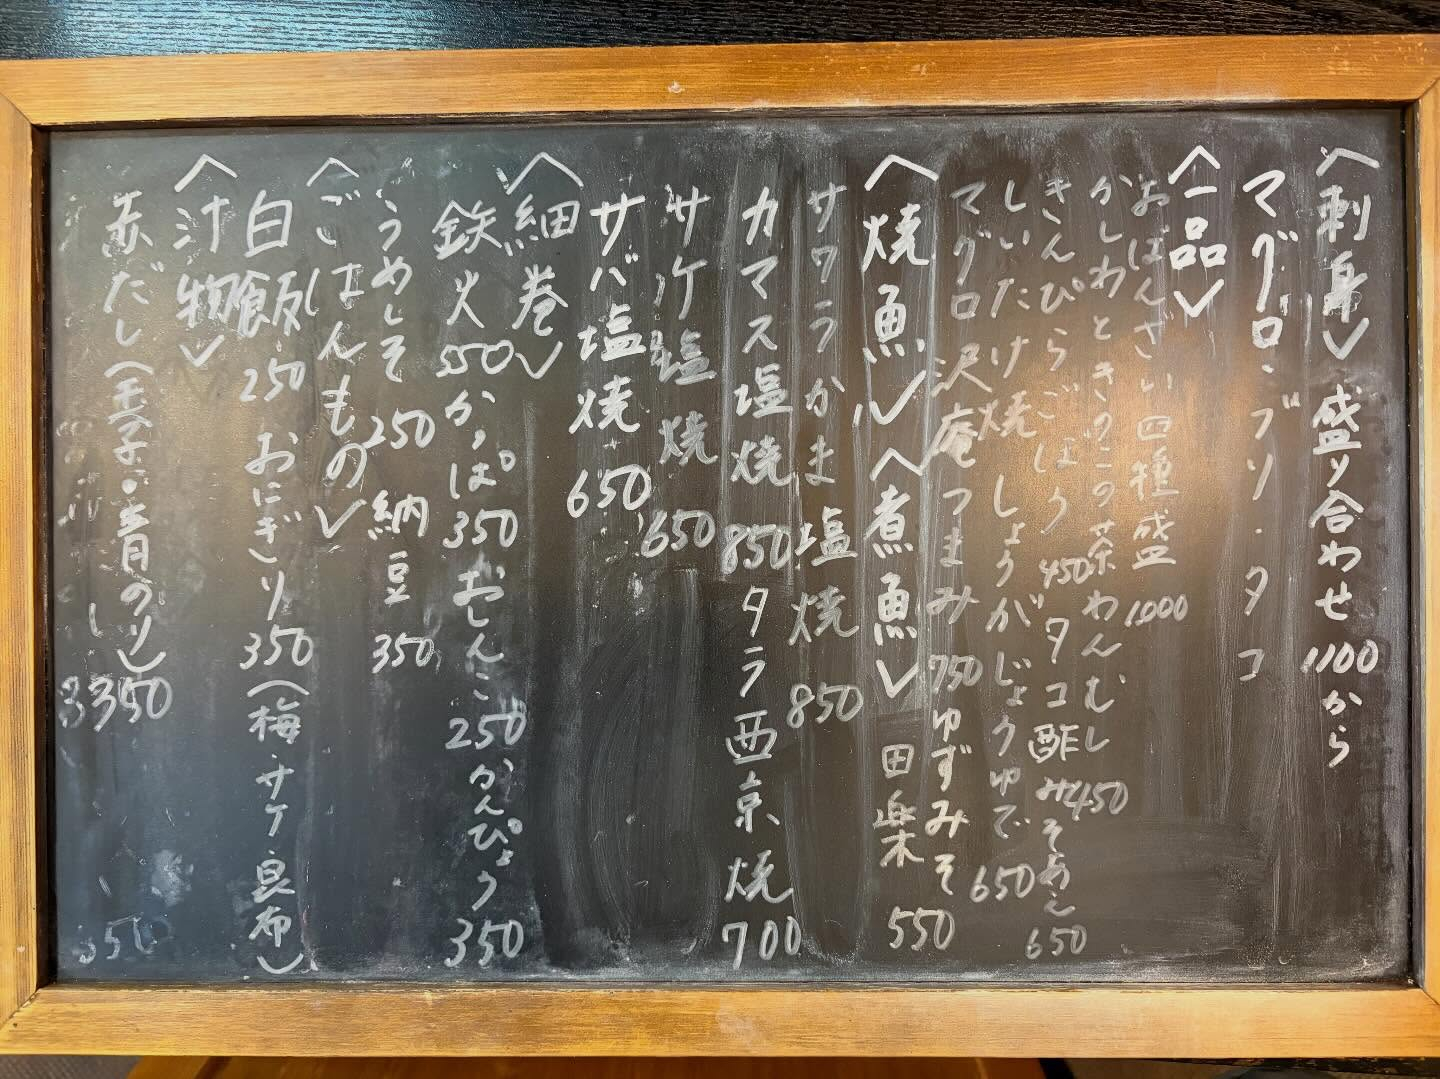 〈刺身〉 盛り合わせ 1100から
マグロ・ブリ・タコ
〈一品〉
おばんざい四種盛 1000
かしわときのこの茶わんむし 450
きんぴらごぼう 450 タコ酢みそあえ 650
しいたけ焼 しょうがじょうゆで 650
マグロ沢庵つまみ 750 ゆずみそ田楽 550
〈焼魚〉〈煮魚〉
サワラかま塩焼 850
カマス塩焼 850 タラ西京焼 700
サケ塩焼 650
サバ塩焼 650
〈細巻〉
鉄火 550 かっぱ 350 おしんこ 250 かんぴょう 350
うめしそ 250 納豆 350
〈ごはんもの〉
白飯 250 おにぎり 350 (梅・サケ・昆布)
〈汁物〉
赤だし(玉子・青のり) 350